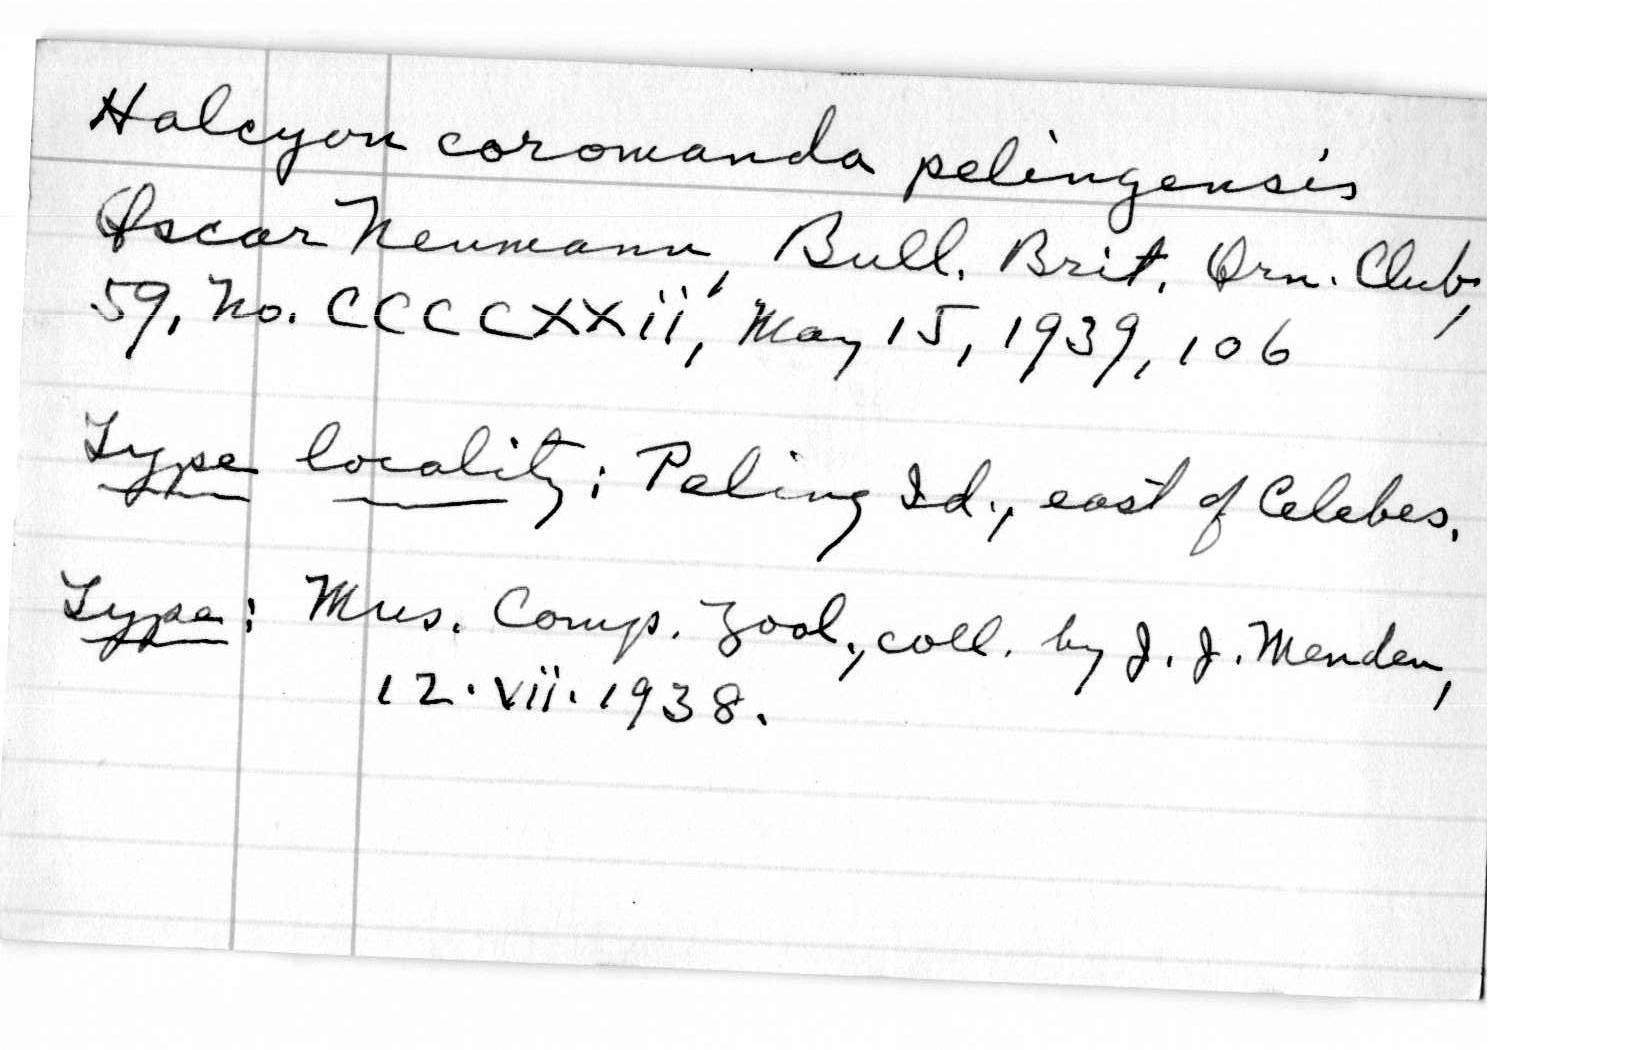 Halcyon coromanda pelingensis
Oscar Neumann, Bull. Brit. Orn. Club,
59, No. CCCCXXii, May 15, 1939, 106
Type locality: Peling Id., east of Celebes.
Type: Mus. Comp. Zool., coll. by J. J. Menden,
12.vii.1938.